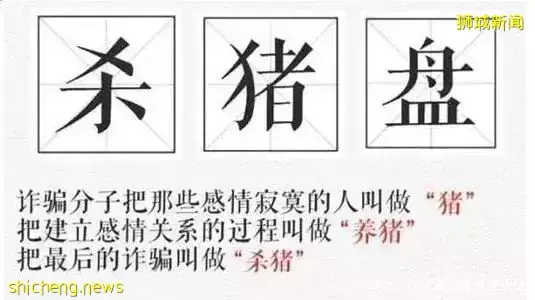 狮城新闻
杀猪盘
诈骗分子把那些感情寂寞的人叫做“猪”
把建立感情关系的过程叫做“养猪”
把最后的诈骗叫做“杀猪”
shicheng.news